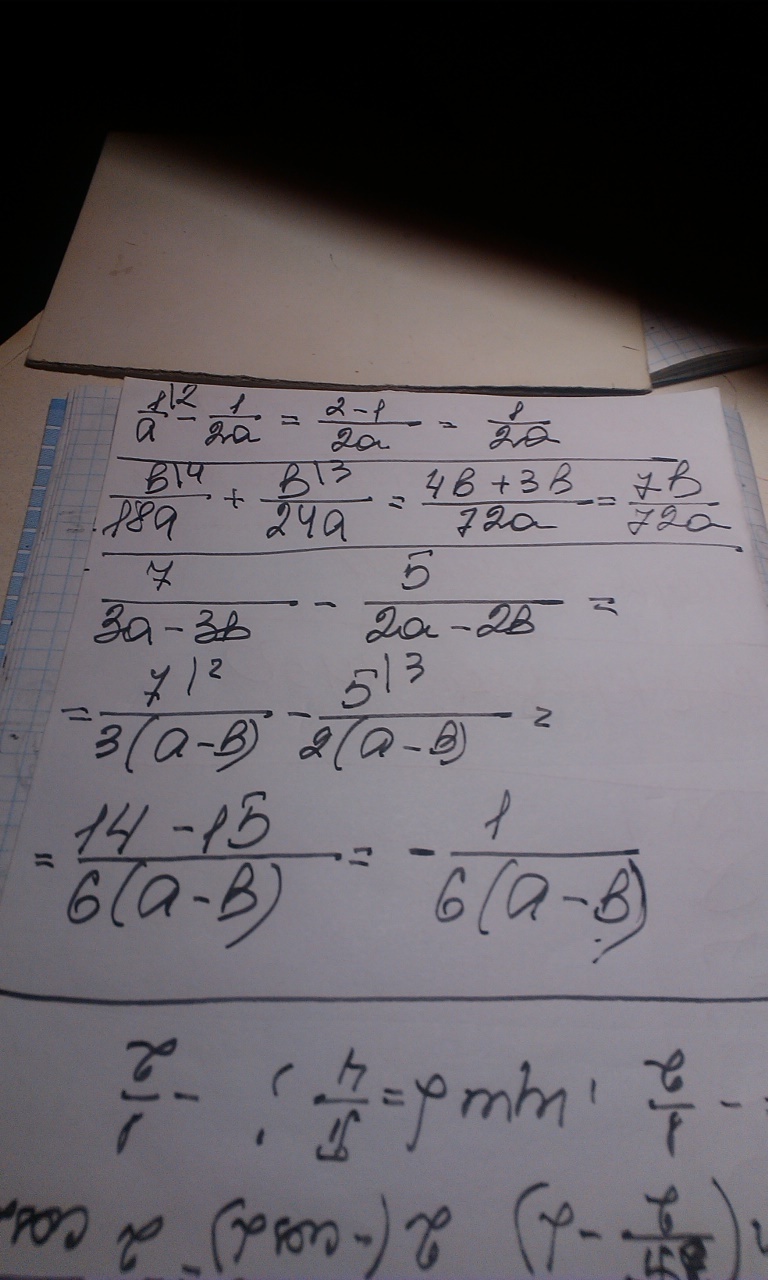 1\2/a - 1/2a = 2-1/2a = 1/2a
в\4/18a + в\3/24a = 4в+3в/72a = 7в/72a
7/3a-3в - 5/2a-2в =
= 7\2/3(a-в) - 5\3/2(a-в) =
= 14-15/6(a-в) = - 1/6(a-в)